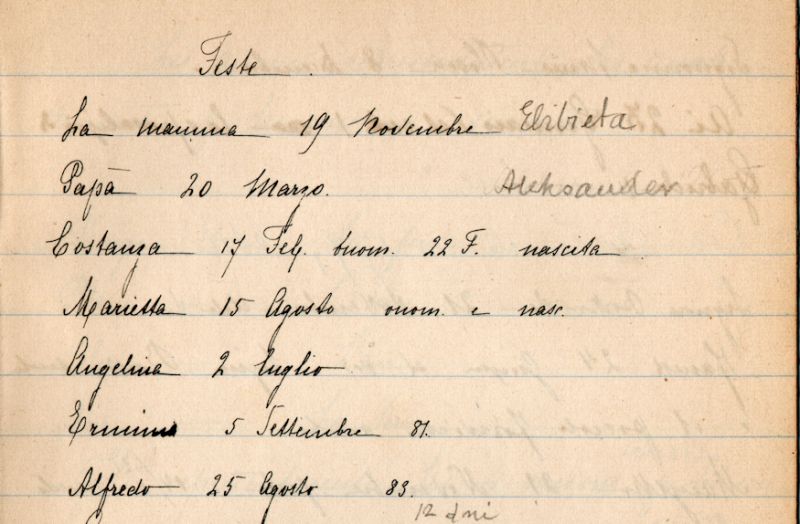 Feste.
La mamma 19 Novembre Elżbieta
Papà 20 Marzo. Aleksander
Costanza 17 Feb. onom. 22 F. nascita
Marietta 15 Agosto onom. e nasc.
Angelina 2 luglio
5 Settembre 81.
Alfredo 25 Agosto 83.
12 dni